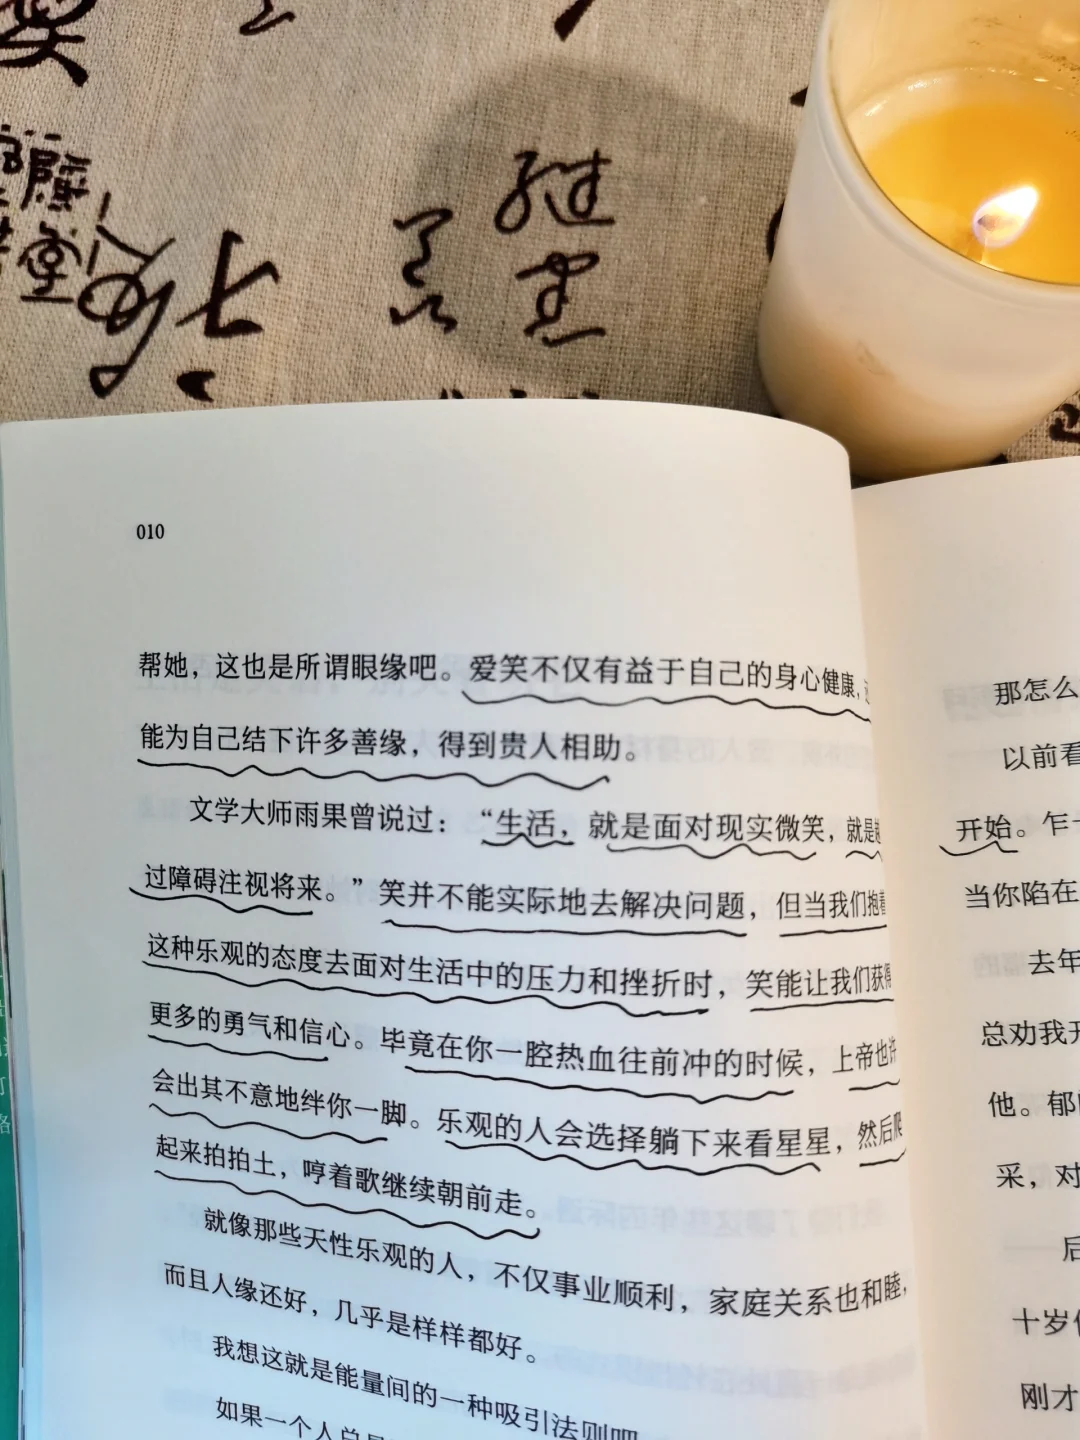 継
010
帮她，这也是所谓眼缘吧。爱笑不仅有益于自己的身心健康，
能为自己结下许多善缘，得到贵人相助。
文学大师雨果曾说过：“生活，就是面对现实微笑，就是越
过障碍注视将来。”笑并不能实际地去解决问题，但当我们抱着
这种乐观的态度去面对生活中的压力和挫折时，笑能让我们获得
更多的勇气和信心。毕竟在你一腔热血往前冲的时候，上帝也许
会出其不意地绊你一脚。乐观的人会选择躺下来看星星，然后爬
起来拍拍土，哼着歌继续朝前走。
就像那些天性乐观的人，不仅事业顺利，家庭关系也和睦，
而且人缘还好，几乎是样样都好。
我想这就是能量间的一种吸引法则吧
如果一个人总是
那怎么
以前看
开始。乍一
当你陷在
去年
总劝我开
他。郁
采，对
后
十岁
刚才